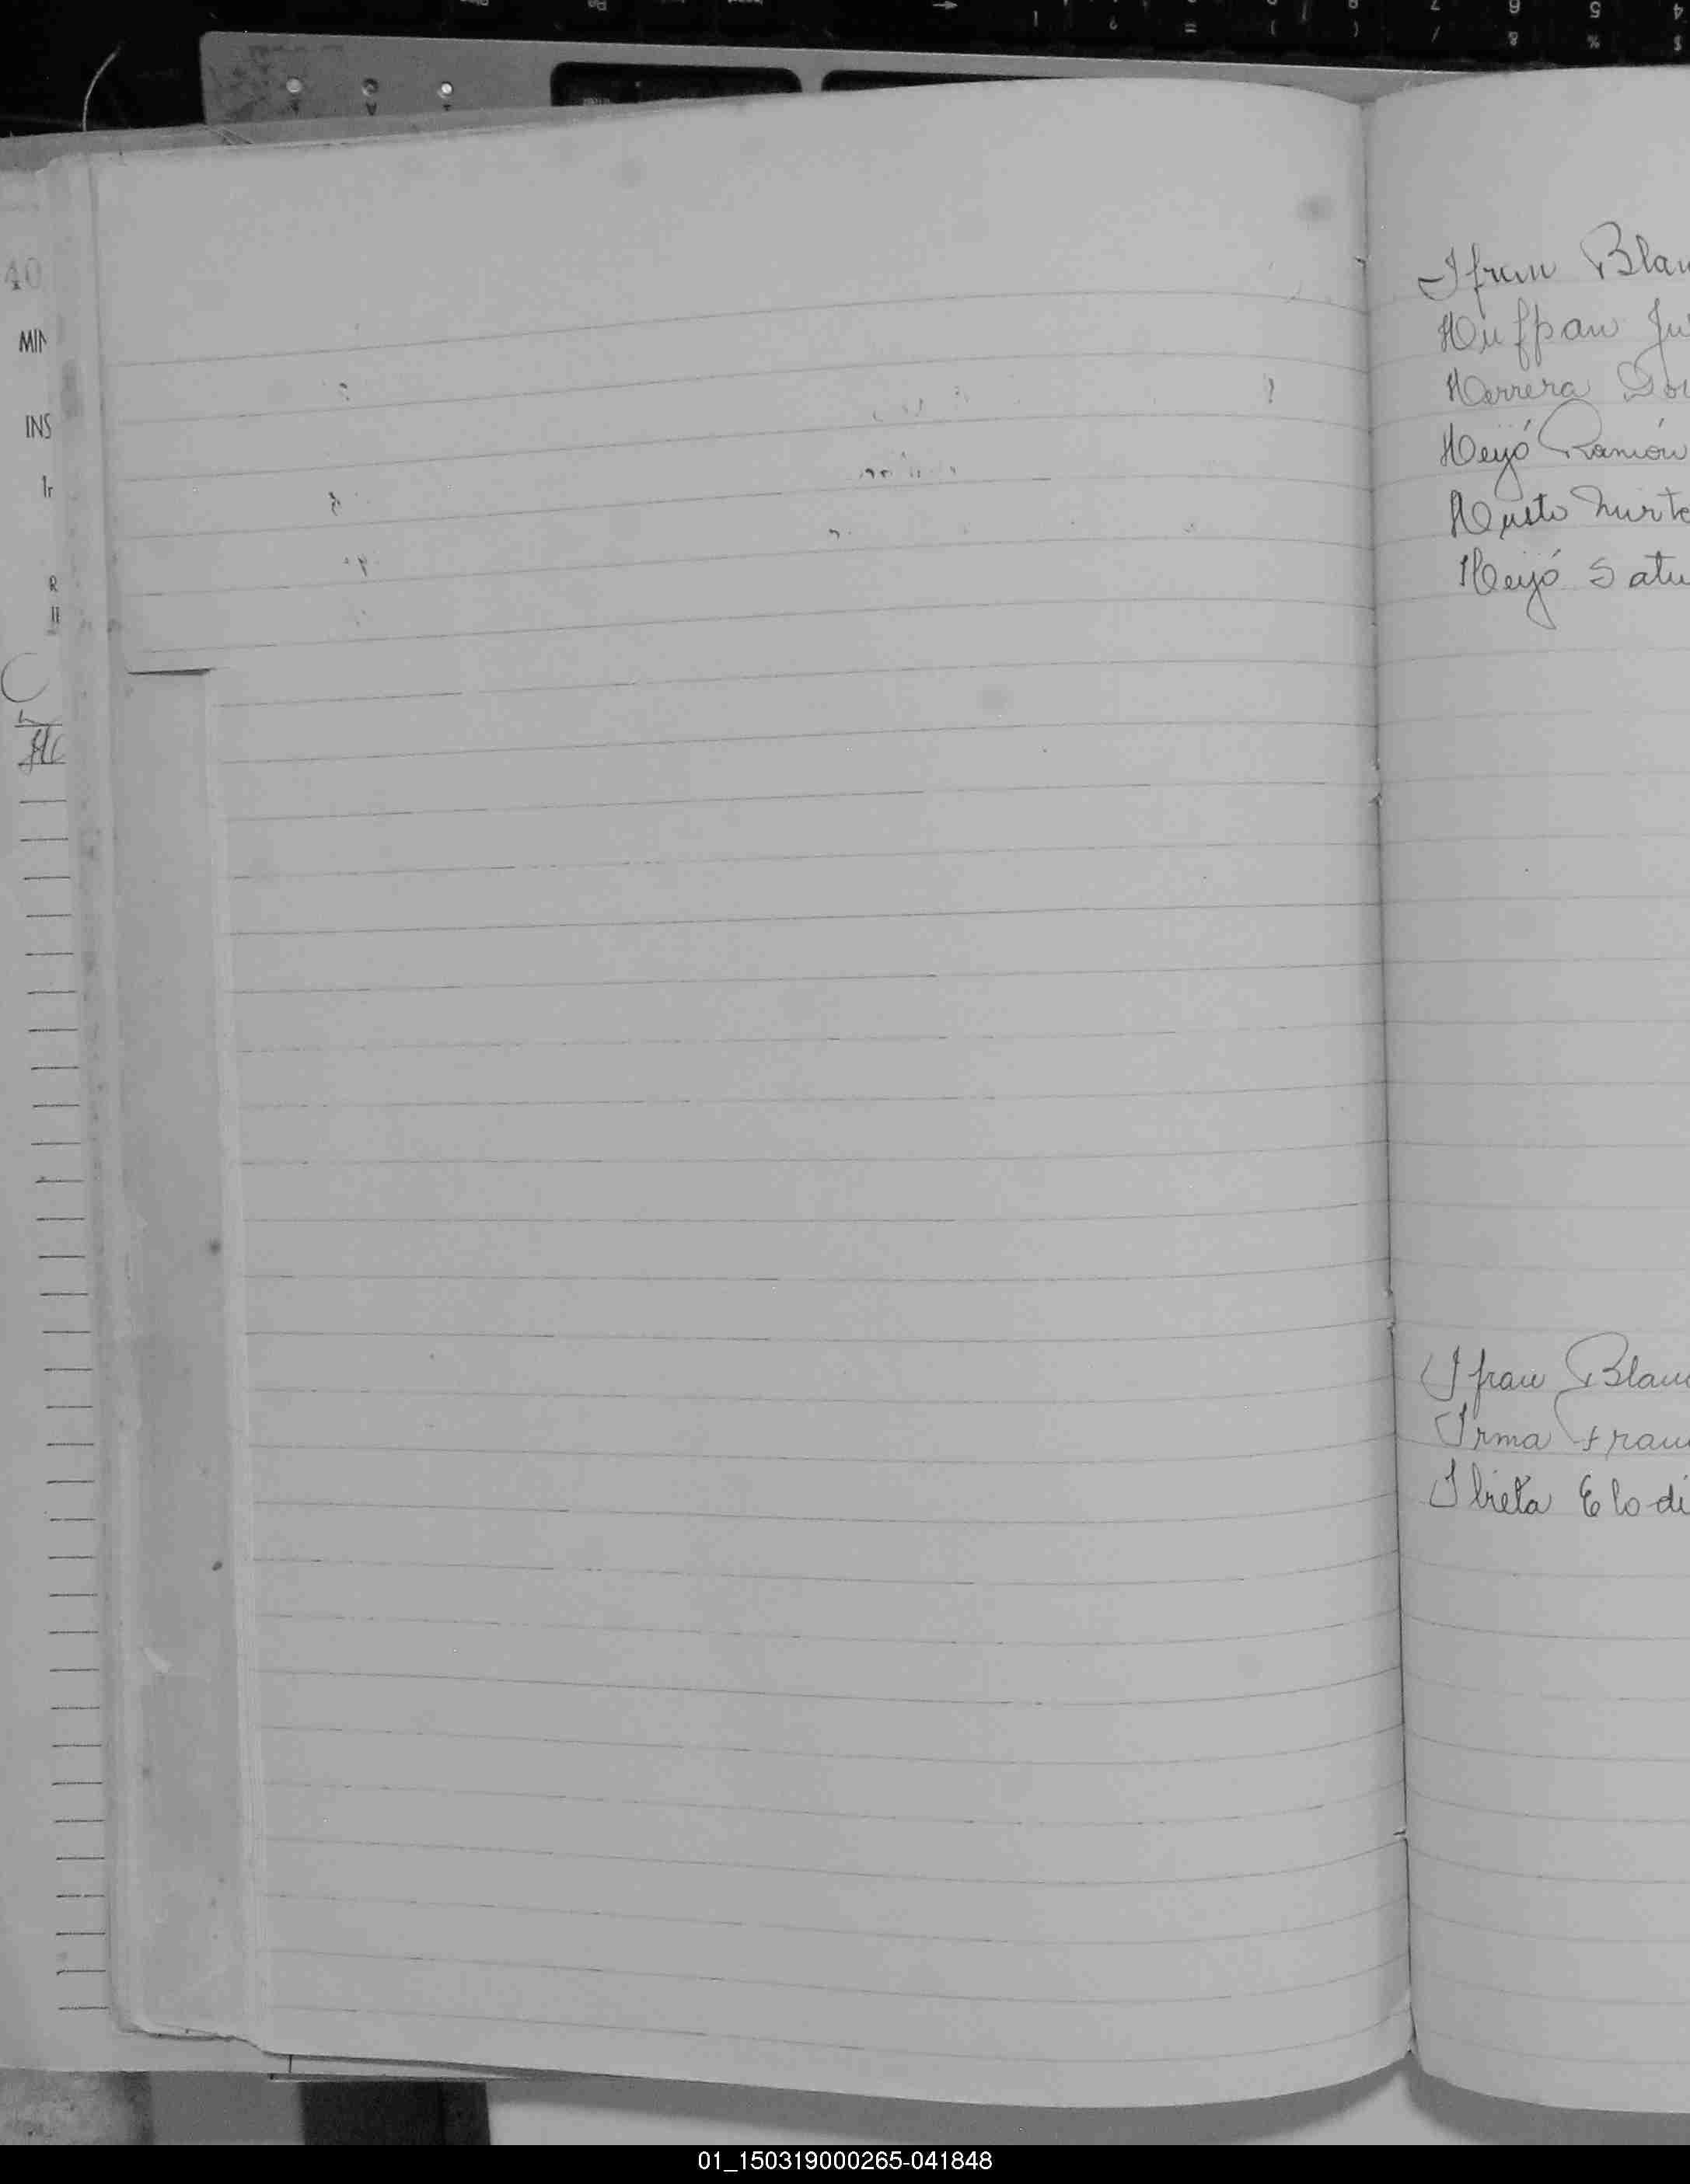 40
MIN
INS
Ifrun Blan
Huffpan Ju
Herrera Do
Heyó Ramón
Husto Mirte
Heyó Satu
Ifran Blan
Irma Fran
Ibieta Elodi
01_150319000265-041848